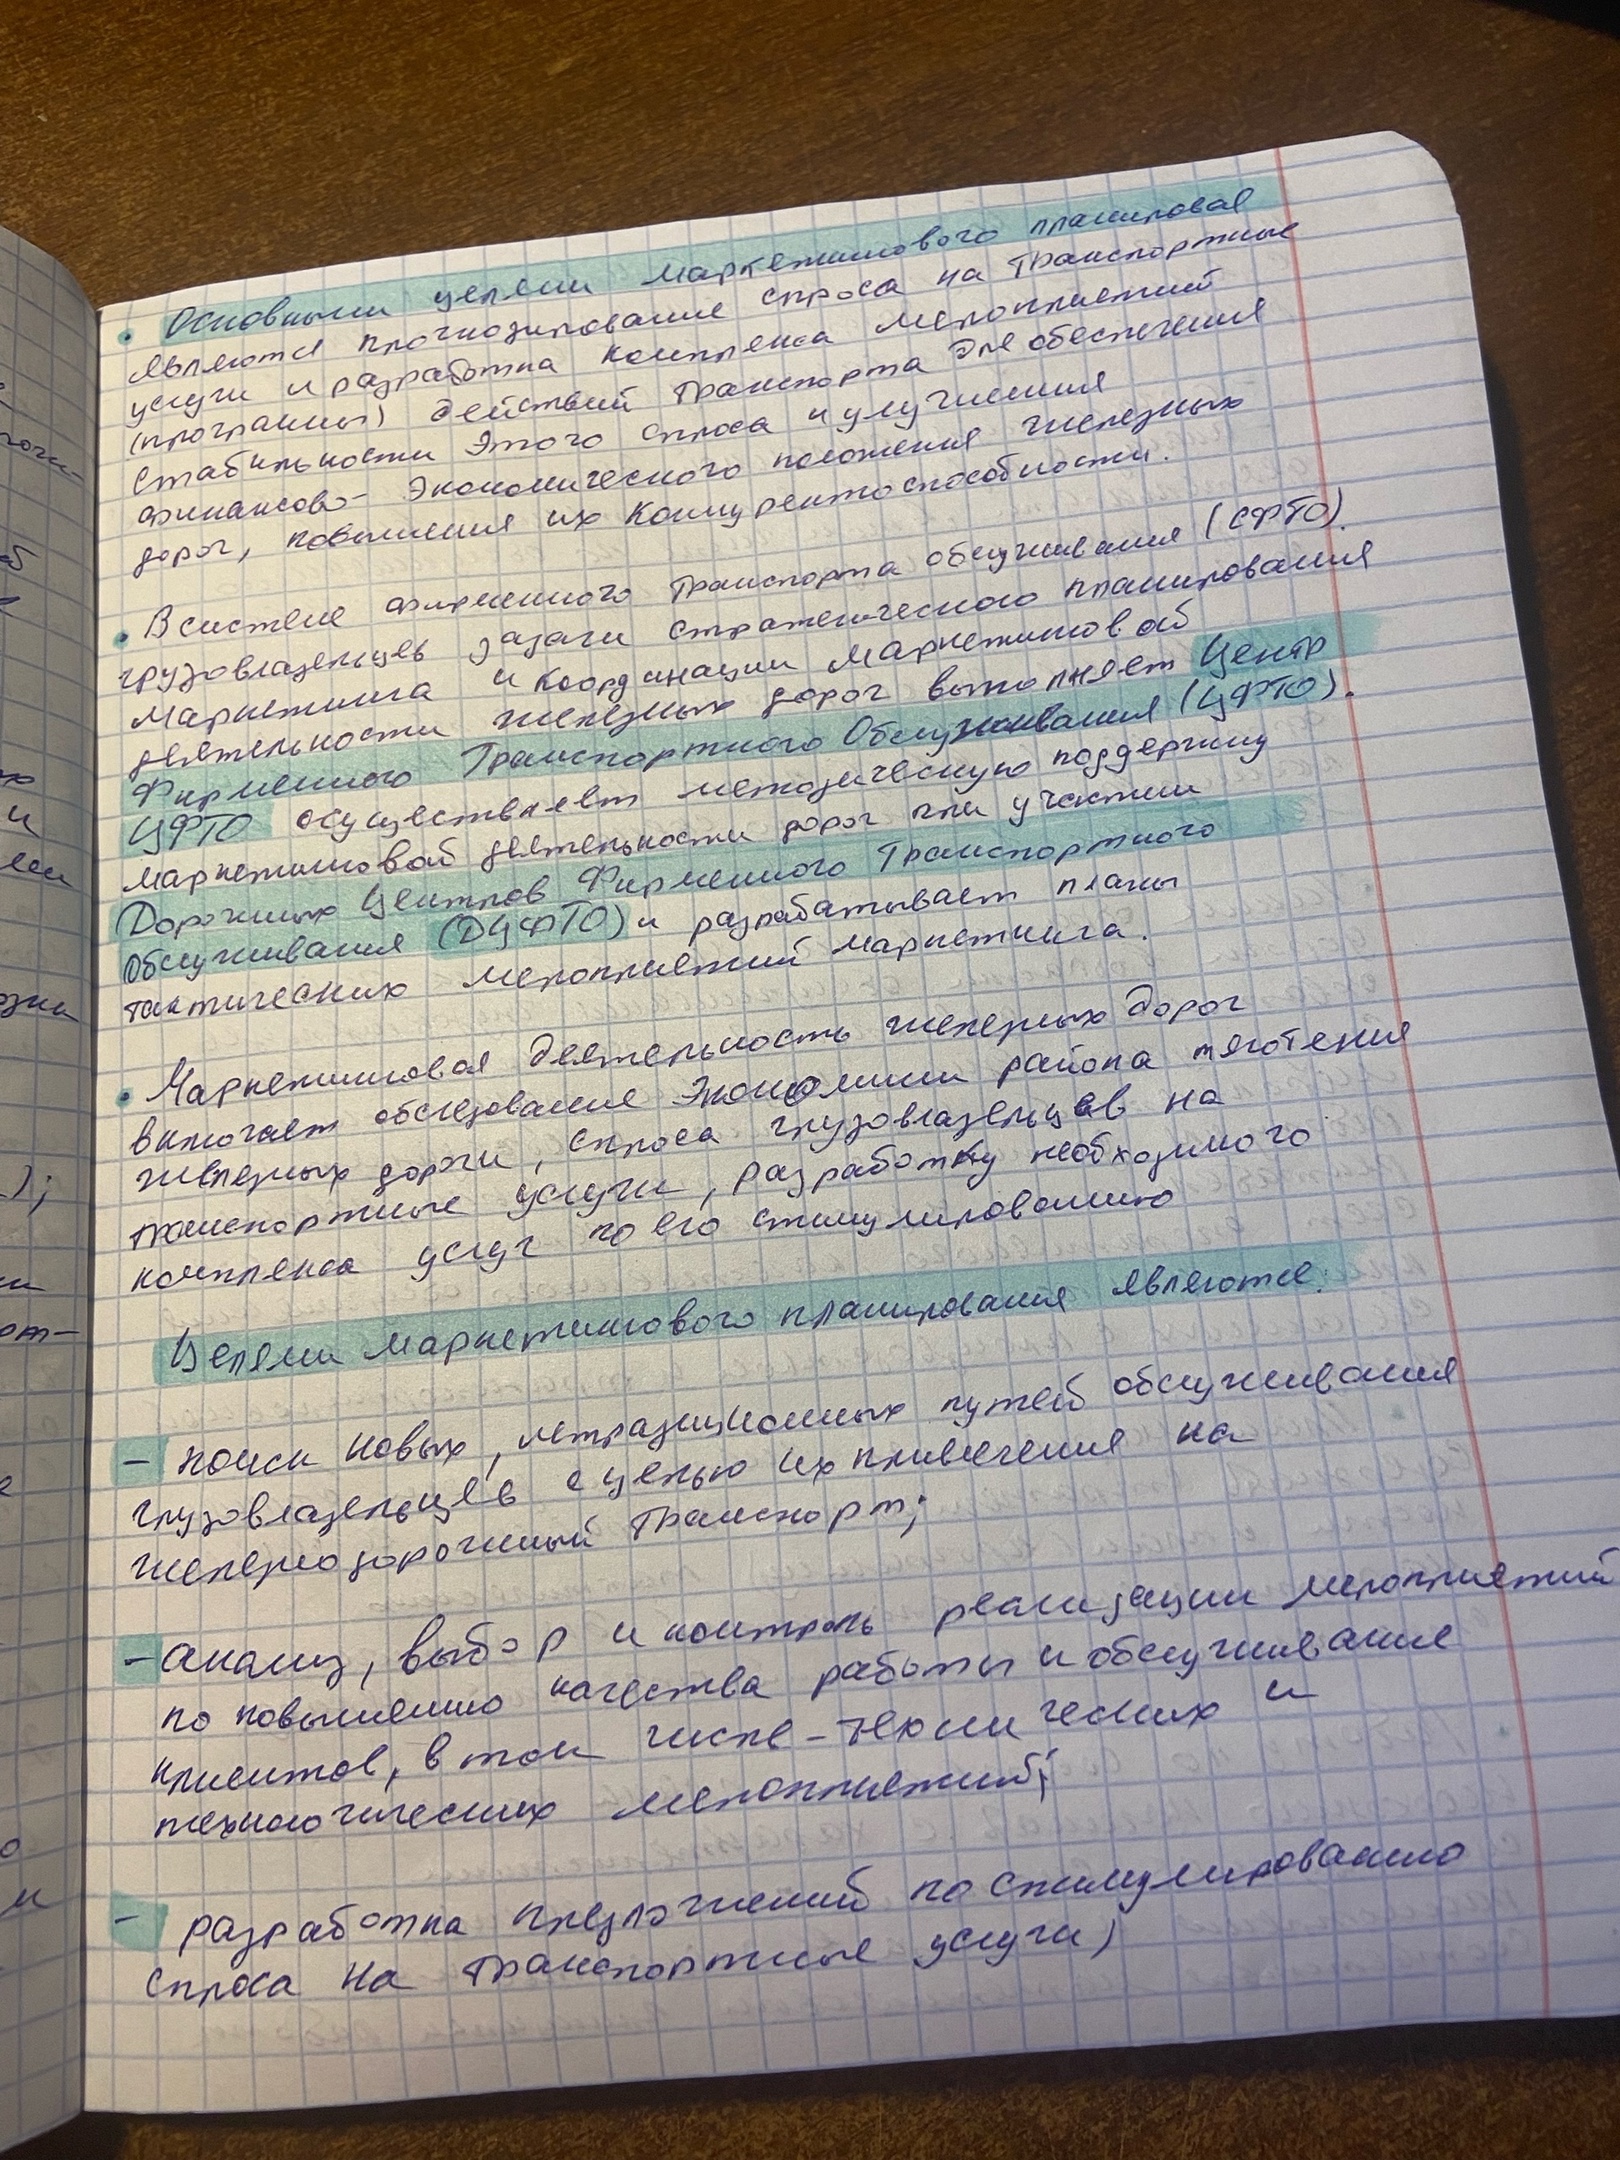 • Основными целями маркетингового планировая
являются прогнозирование спроса на транспортные
услуги и разработка комплекса мероприятий
(программы) действий транспорта для обеспечения
стабильности этого спроса и улучшения
финансово- экономического положения железных
дорог, повышения их конкурентоспособности.
• В системе фирменного транспорта обслуживания (СФТО).
грузовладельцев задачи стратегического планирования
маркетинга и координации маркетинговой
деятельности железных дорог выполняет Центр
Фирменного Транспортного Обслуживания (ЦФТО).
ЦФТО осуществляет методическую поддержку
маркетинговой деятельности дорог при участии
Дорожных Центров Фирменного Транспортного
Обслуживания (ДЦФТО) и разрабатывает планы
тактических мероприятий маркетинга.
• Маркетинговая деятельность железных дорог
включает обследование экономики района тяготения
железных дороги, спроса грузовладельцев на
транспортные услуги, разработку необходимого
комплекса услуг по его стимулированию
Целями маркетингового планирования являются:
- поиск новых, нетрадиционных путей обслуживания
грузовладельцев с целью их привлечения на
железнодорожный транспорт;
- анализ, выбор и контроль реализации мероприятий
по повышению качества работы и обслуживание
клиентов, в том числе - технических и
технологических мероприятий;
- разработка предложений по стимулированию
спроса на транспортные услуги)